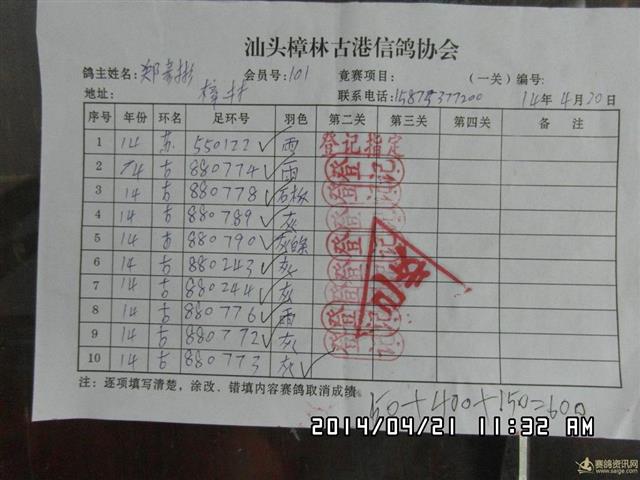 汕头樟林古港信鸽协会
鸽主姓名: 会员号:101 竞赛项目: (一关) 编号:
地址: 樟林 联系电话:15875377200 14年4月20日
序号 年份 环名 足环号 羽色 第二关 第三关 第四关 备注
1 14 苏 550122 雨 登记指定
2 14 古 880774 雨 登记
3 14 古 880778 石板 登记
4 14 古 880789 灰 登记
5 14 古 880790 登记
6 14 古 880243 灰 登记
7 14 古 880244 灰 登记
8 14 古 880776 雨 登记
9 14 古 880772 灰
10 14 古 880773 灰
注:逐项填写清楚,涂改、错填内容赛鸽取消成绩
50+400+150=600
2014/04/21 11:32 AM
赛鸽资讯网
www.saige.com